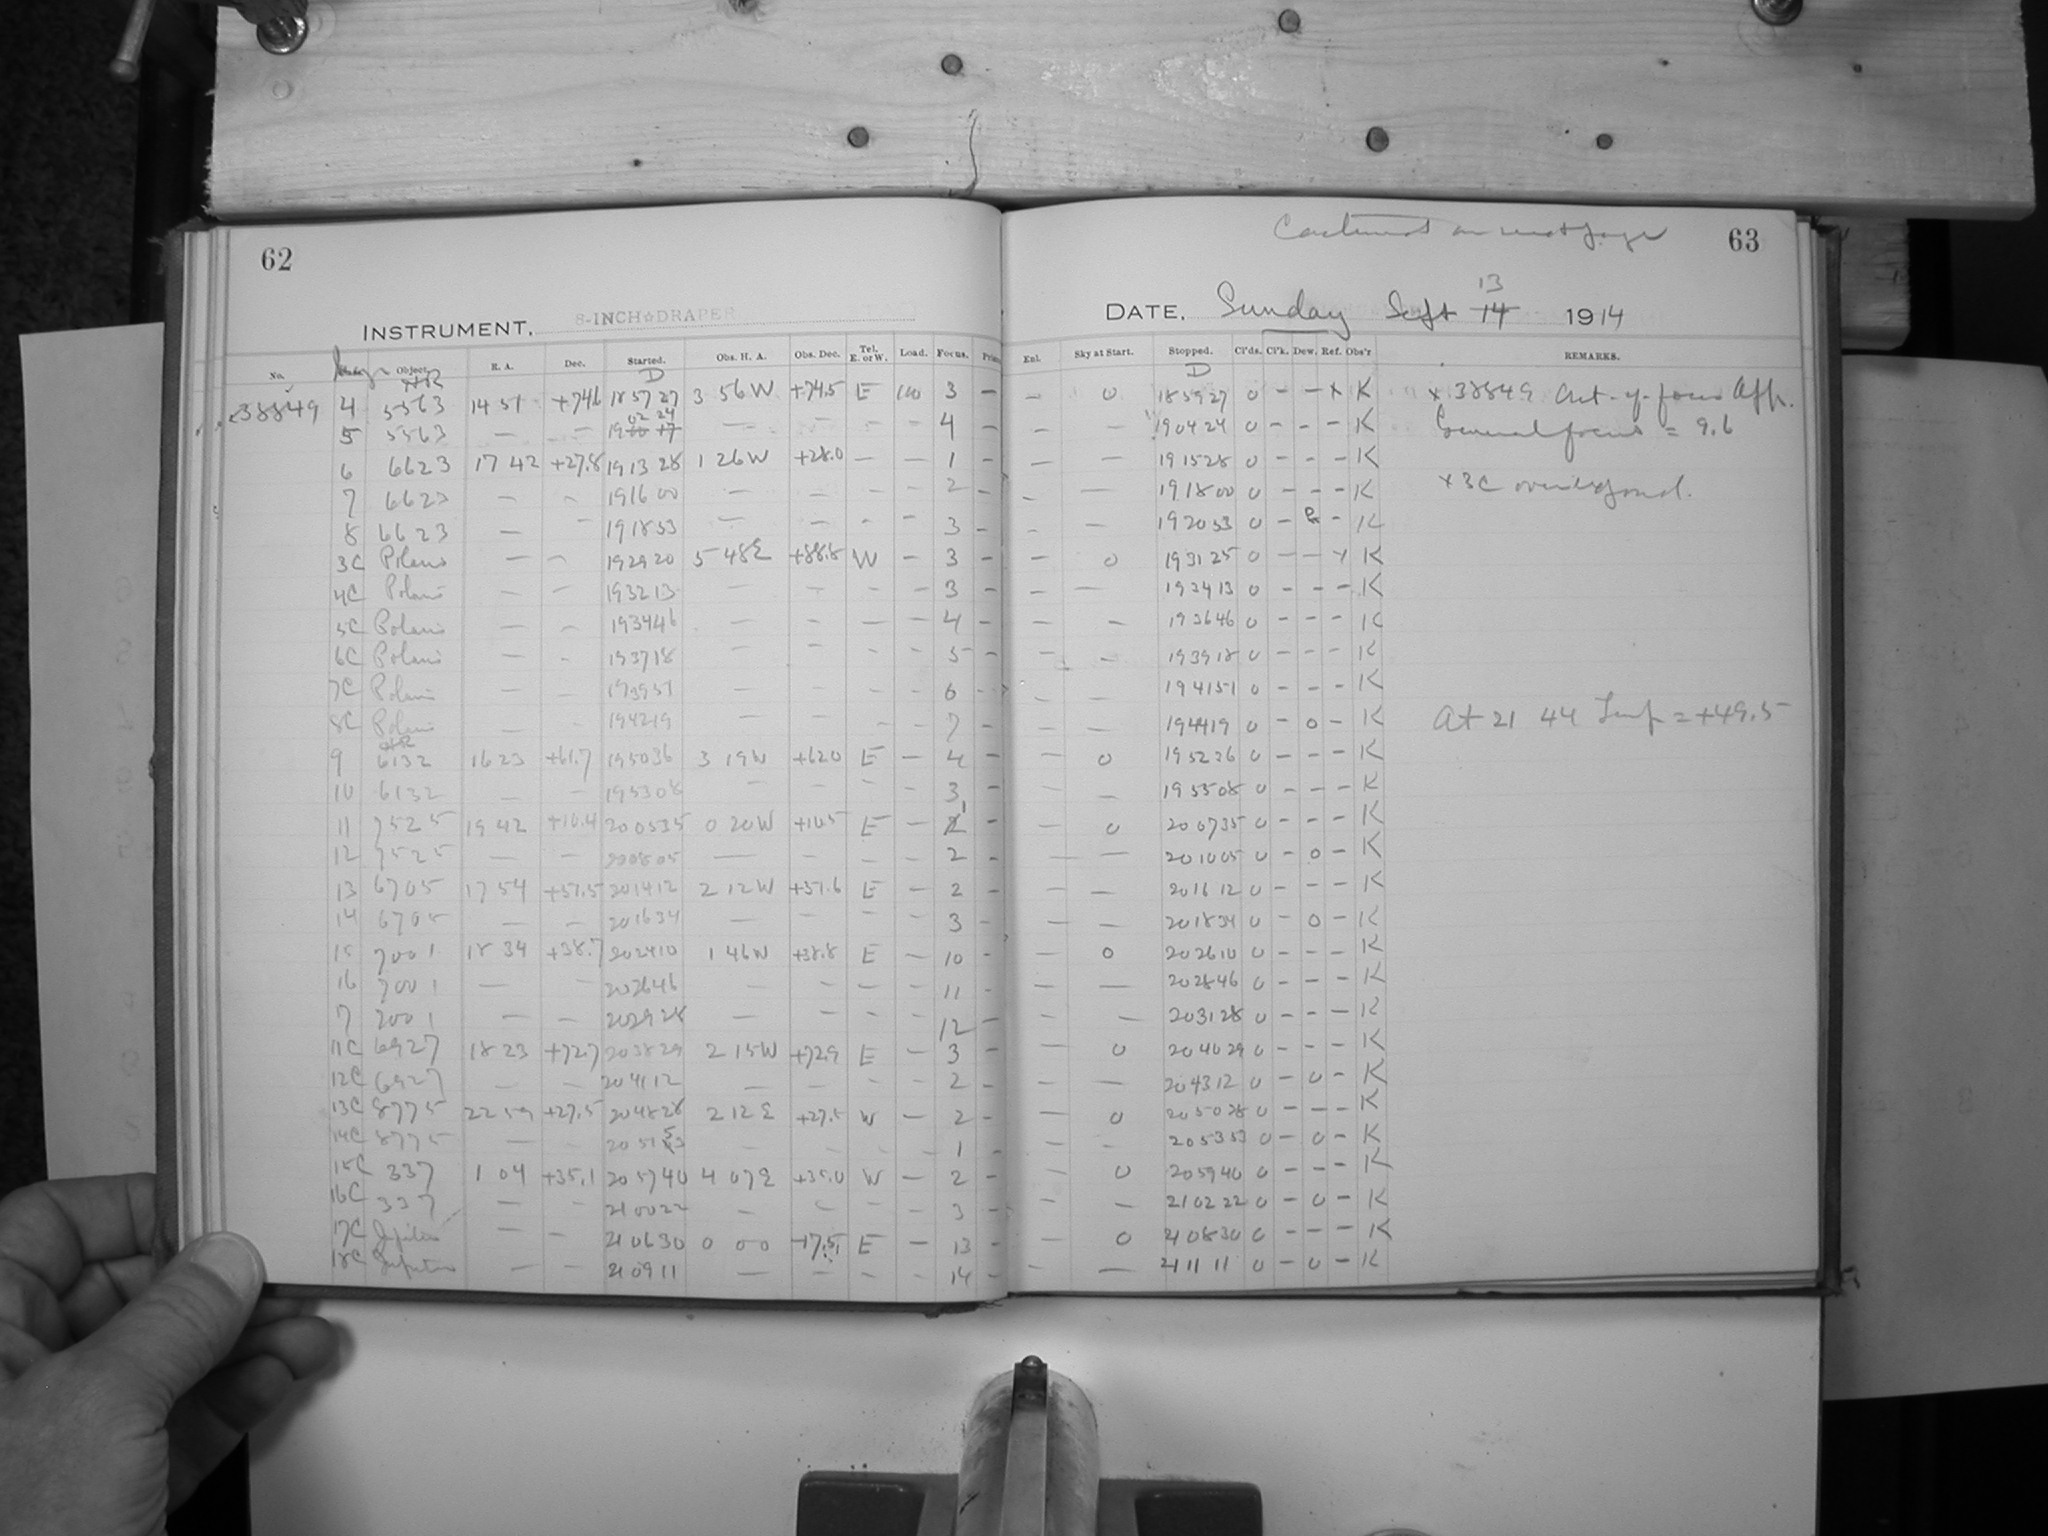 62
INSTRUMENT. 8-INCH DRAPER
No. Object. R. A. Dec. Started. Obs. H. A. Obs. Dec. Tel. E. or W. Load. Focus.
HR D
x38849 4 5563 14 51 +74.6 18 57 27 3 56 W +74.5 E 100 3 –
5 5563 — — 19 02 24 — — 4 –
6 6623 17 42 +27.8 19 13 28 1 26 W +28.0 — — 1 –
7 6623 — — 19 16 00 — — — — 2 –
8 6623 — — 19 18 53 — — — — 3 –
3C Polaris — — 19 29 20 5 48 E +88.8 W — 3 –
4C Polaris — — 19 32 13 — — — — 3 –
5C Polaris — — 19 34 46 — — — — 4 –
6C Polaris — — 19 37 18 — — — — 5 –
7C Polaris — — 19 39 51 — — — — 6 –
8C Polaris — — 19 42 19 — — — — 7 –
HR
9 6132 16 23 +61.7 19 50 36 3 19 W +62.0 E — 4 –
10 6132 — — 19 53 08 — — — — 3 –
11 7525 19 42 +10.4 20 05 35 0 20 W +10.5 E — 1 –
12 7525 — — 20 08 05 — — — — 2 –
13 6705 17 54 +51.5 20 14 12 2 12 W +51.6 E — 2 –
14 6705 — — 20 16 34 — — — — 3 –
15 7001 18 34 +38.7 20 24 10 1 46 W +38.8 E — 10 –
16 7001 — — 20 26 46 — — — — 11 –
7 7001 — — 20 29 28 — — — — 12 –
11C 6927 18 23 +72.7 20 38 29 2 15 W +72.9 E — 3 –
12C 6927 — — 20 41 12 — — — — 2 –
13C 8775 22 59 +27.5 20 48 28 2 12 E +27.5 W — 2 –
14C 8775 — — 20 51 53 — — — — 1 –
15C 337 1 04 +35.1 20 57 40 4 07 E +35.0 W — 2 –
16C 337 — — 21 00 22 — — — — 3 –
17C Jupiter — — 21 06 30 0 00 –17.5 E — 13 –
18C Jupiter — — 21 09 11 — — — — 14 –
Continued on next page 63
13
DATE, Sunday Sept 14 1914
Enl. Sky at Start. Stopped. Cl'ds. Cl'k. Dew. Ref. Obs'r REMARKS.
D
– 0 18 59 27 0 – – x K x 38849 Out-of-focus App.
– — 19 04 24 0 – – – K General focus = 9.6
– — 19 15 28 0 – – – K
– — 19 18 00 0 – – – K x 3C overexposed.
– — 19 20 53 0 – – K
– 0 19 31 25 0 – – x K
– — 19 34 13 0 – – – K
– — 19 36 46 0 – – – K
– — 19 39 18 0 – – – K
– — 19 41 51 0 – – – K
– — 19 44 19 0 – 0 – K At 21 44 Temp = +49.5
– 0 19 52 36 0 – – – K
– — 19 55 08 0 – – – K
– 0 20 07 35 0 – – – K
– — 20 10 05 0 – 0 – K
– — 20 16 12 0 – – – K
– — 20 18 34 0 – 0 – K
– 0 20 26 10 0 – – – K
– — 20 28 46 0 – – – K
– — 20 31 28 0 – – – K
– 0 20 40 29 0 – – – K
– — 20 43 12 0 – 0 – K
– 0 20 50 28 0 – – – K
– — 20 53 53 0 – 0 – K
– 0 20 59 40 0 – – – K
– — 21 02 22 0 – 0 – K
– 0 21 08 30 0 – – – K
– — 21 11 11 0 – 0 – K